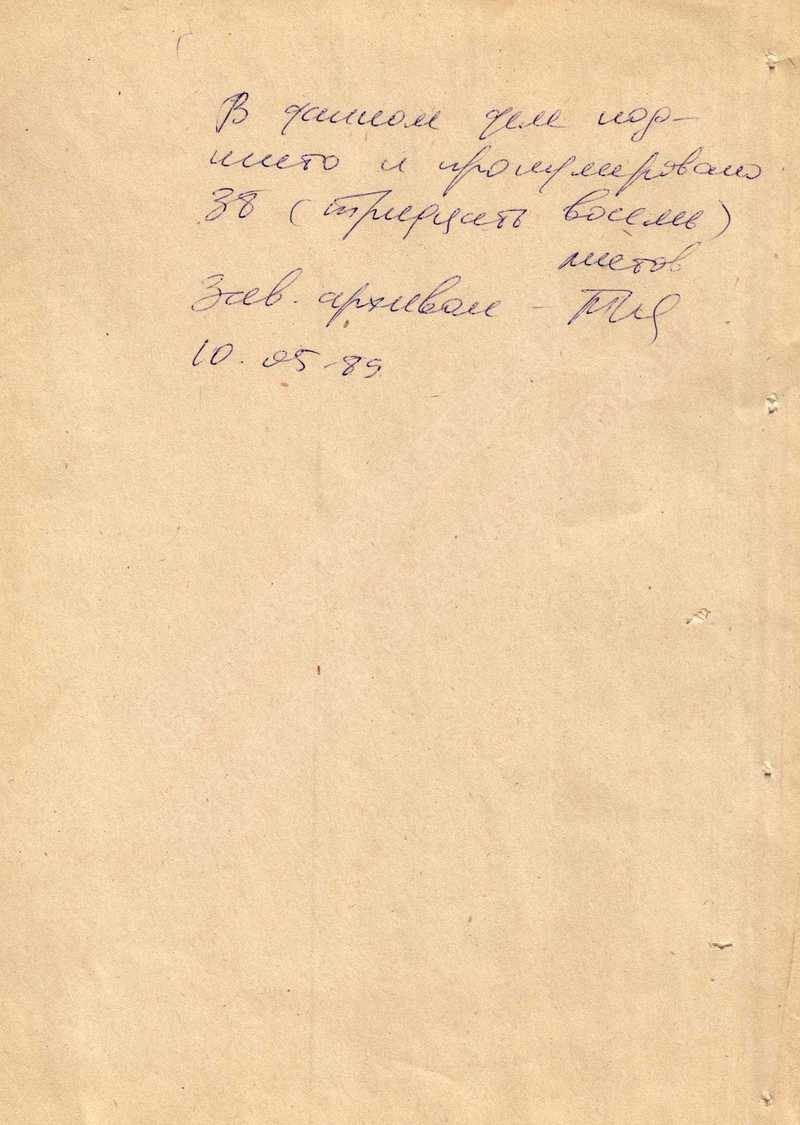 В данном деле под-
шито и пронумеровано
38 (тридцать восемь)
листов
Зав. архивом –
10.05.89